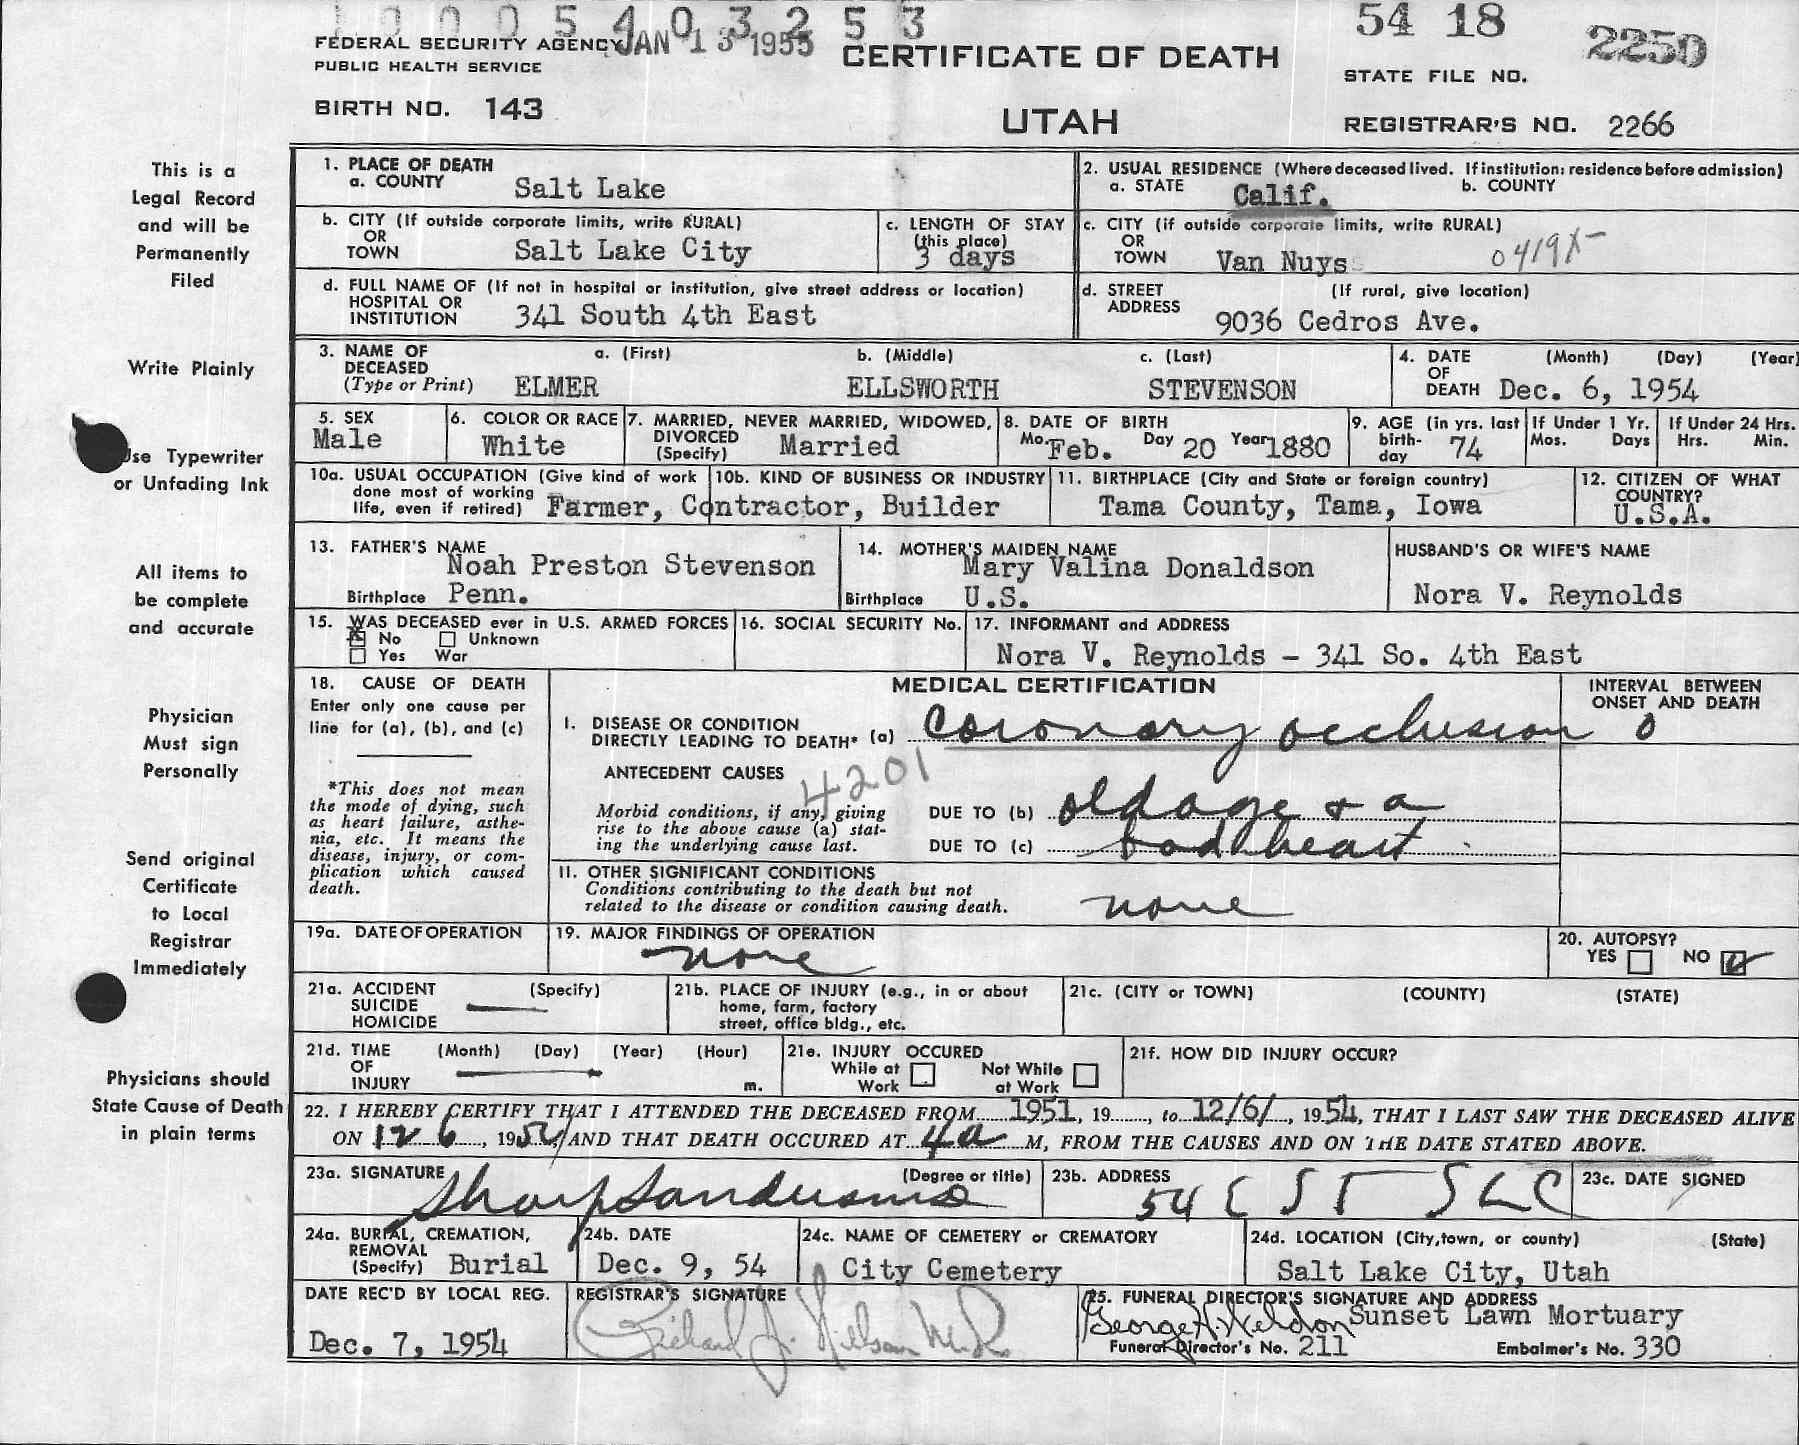 1 0 0 0 5 4 0 3 2 5 3
54 18
2250
FEDERAL SECURITY AGENCY JAN 13 1955 CERTIFICATE OF DEATH
PUBLIC HEALTH SERVICE
STATE FILE NO.
BIRTH NO. 143
UTAH
REGISTRAR'S NO. 2266
This is a
Legal Record
and will be
Permanently
Filed
Write Plainly
Use Typewriter
or Unfading Ink
All items to
be complete
and accurate
Physician
Must sign
Personally
Send original
Certificate
to Local
Registrar
Immediately
Physicians should
State Cause of Death
in plain terms
1. PLACE OF DEATH
a. COUNTY Salt Lake
2. USUAL RESIDENCE (Where deceased lived. If institution: residence before admission)
a. STATE Calif. b. COUNTY
b. CITY (If outside corporate limits, write RURAL)
OR
TOWN Salt Lake City
c. LENGTH OF STAY
(this place)
3 days
c. CITY (if outside corporate limits, write RURAL)
OR
TOWN Van Nuys 0419X-
d. FULL NAME OF (If not in hospital or institution, give street address or location)
HOSPITAL OR
INSTITUTION 341 South 4th East
d. STREET (If rural, give location)
ADDRESS
9036 Cedros Ave.
3. NAME OF a. (First) b. (Middle) c. (Last)
DECEASED
(Type or Print) ELMER ELLSWORTH STEVENSON
4. DATE (Month) (Day) (Year)
OF
DEATH Dec. 6, 1954
5. SEX
Male
6. COLOR OR RACE
White
7. MARRIED, NEVER MARRIED, WIDOWED,
DIVORCED
(Specify) Married
8. DATE OF BIRTH
Mo. Feb. Day 20 Year 1880
9. AGE (in yrs. last
birth-
day 74
If Under 1 Yr.
Mos. Days
If Under 24 Hrs.
Hrs. Min.
10a. USUAL OCCUPATION (Give kind of work
done most of working
life, even if retired) Farmer, Contractor, Builder
10b. KIND OF BUSINESS OR INDUSTRY
11. BIRTHPLACE (City and State or foreign country)
Tama County, Tama, Iowa
12. CITIZEN OF WHAT
COUNTRY?
U.S.A.
13. FATHER'S NAME
Noah Preston Stevenson
Birthplace Penn.
14. MOTHER'S MAIDEN NAME
Mary Valina Donaldson
Birthplace U.S.
HUSBAND'S OR WIFE'S NAME
Nora V. Reynolds
15. WAS DECEASED ever in U.S. ARMED FORCES
X No Unknown
Yes War
16. SOCIAL SECURITY No.
17. INFORMANT and ADDRESS
Nora V. Reynolds - 341 So. 4th East
18. CAUSE OF DEATH
Enter only one cause per
line for (a), (b), and (c)
*This does not mean
the mode of dying, such
as heart failure, asthe-
nia, etc. It means the
disease, injury, or com-
plication which caused
death.
MEDICAL CERTIFICATION
INTERVAL BETWEEN
ONSET AND DEATH
I. DISEASE OR CONDITION
DIRECTLY LEADING TO DEATH* (a) Coronary occlusion 0
ANTECEDENT CAUSES 4201
Morbid conditions, if any, giving
rise to the above cause (a) stat-
ing the underlying cause last.
DUE TO (b) old age & a
DUE TO (c) bad heart
II. OTHER SIGNIFICANT CONDITIONS
Conditions contributing to the death but not
related to the disease or condition causing death. none
19a. DATE OF OPERATION
19. MAJOR FINDINGS OF OPERATION
none
20. AUTOPSY?
YES NO
21a. ACCIDENT (Specify)
SUICIDE
HOMICIDE
21b. PLACE OF INJURY (e.g., in or about
home, farm, factory
street, office bldg., etc.
21c. (CITY or TOWN) (COUNTY) (STATE)
21d. TIME (Month) (Day) (Year) (Hour)
OF
INJURY m.
21e. INJURY OCCURED
While at Not While
Work at Work
21f. HOW DID INJURY OCCUR?
22. I HEREBY CERTIFY THAT I ATTENDED THE DECEASED FROM 1951, 19 , to 12/6/, 1954, THAT I LAST SAW THE DECEASED ALIVE
ON 12 6, 1954, AND THAT DEATH OCCURED AT 4 a M, FROM THE CAUSES AND ON THE DATE STATED ABOVE.
23a. SIGNATURE (Degree or title)
23b. ADDRESS
54 E ST SLC
23c. DATE SIGNED
24a. BURIAL, CREMATION,
REMOVAL
(Specify) Burial
24b. DATE
Dec. 9, 54
24c. NAME OF CEMETERY or CREMATORY
City Cemetery
24d. LOCATION (City, town, or county) (State)
Salt Lake City, Utah
DATE REC'D BY LOCAL REG.
Dec. 7, 1954
REGISTRAR'S SIGNATURE
Richard J. Nielson M.D.
25. FUNERAL DIRECTOR'S SIGNATURE AND ADDRESS
George H. Weldon Sunset Lawn Mortuary
Funeral Director's No. 211 Embalmer's No. 330